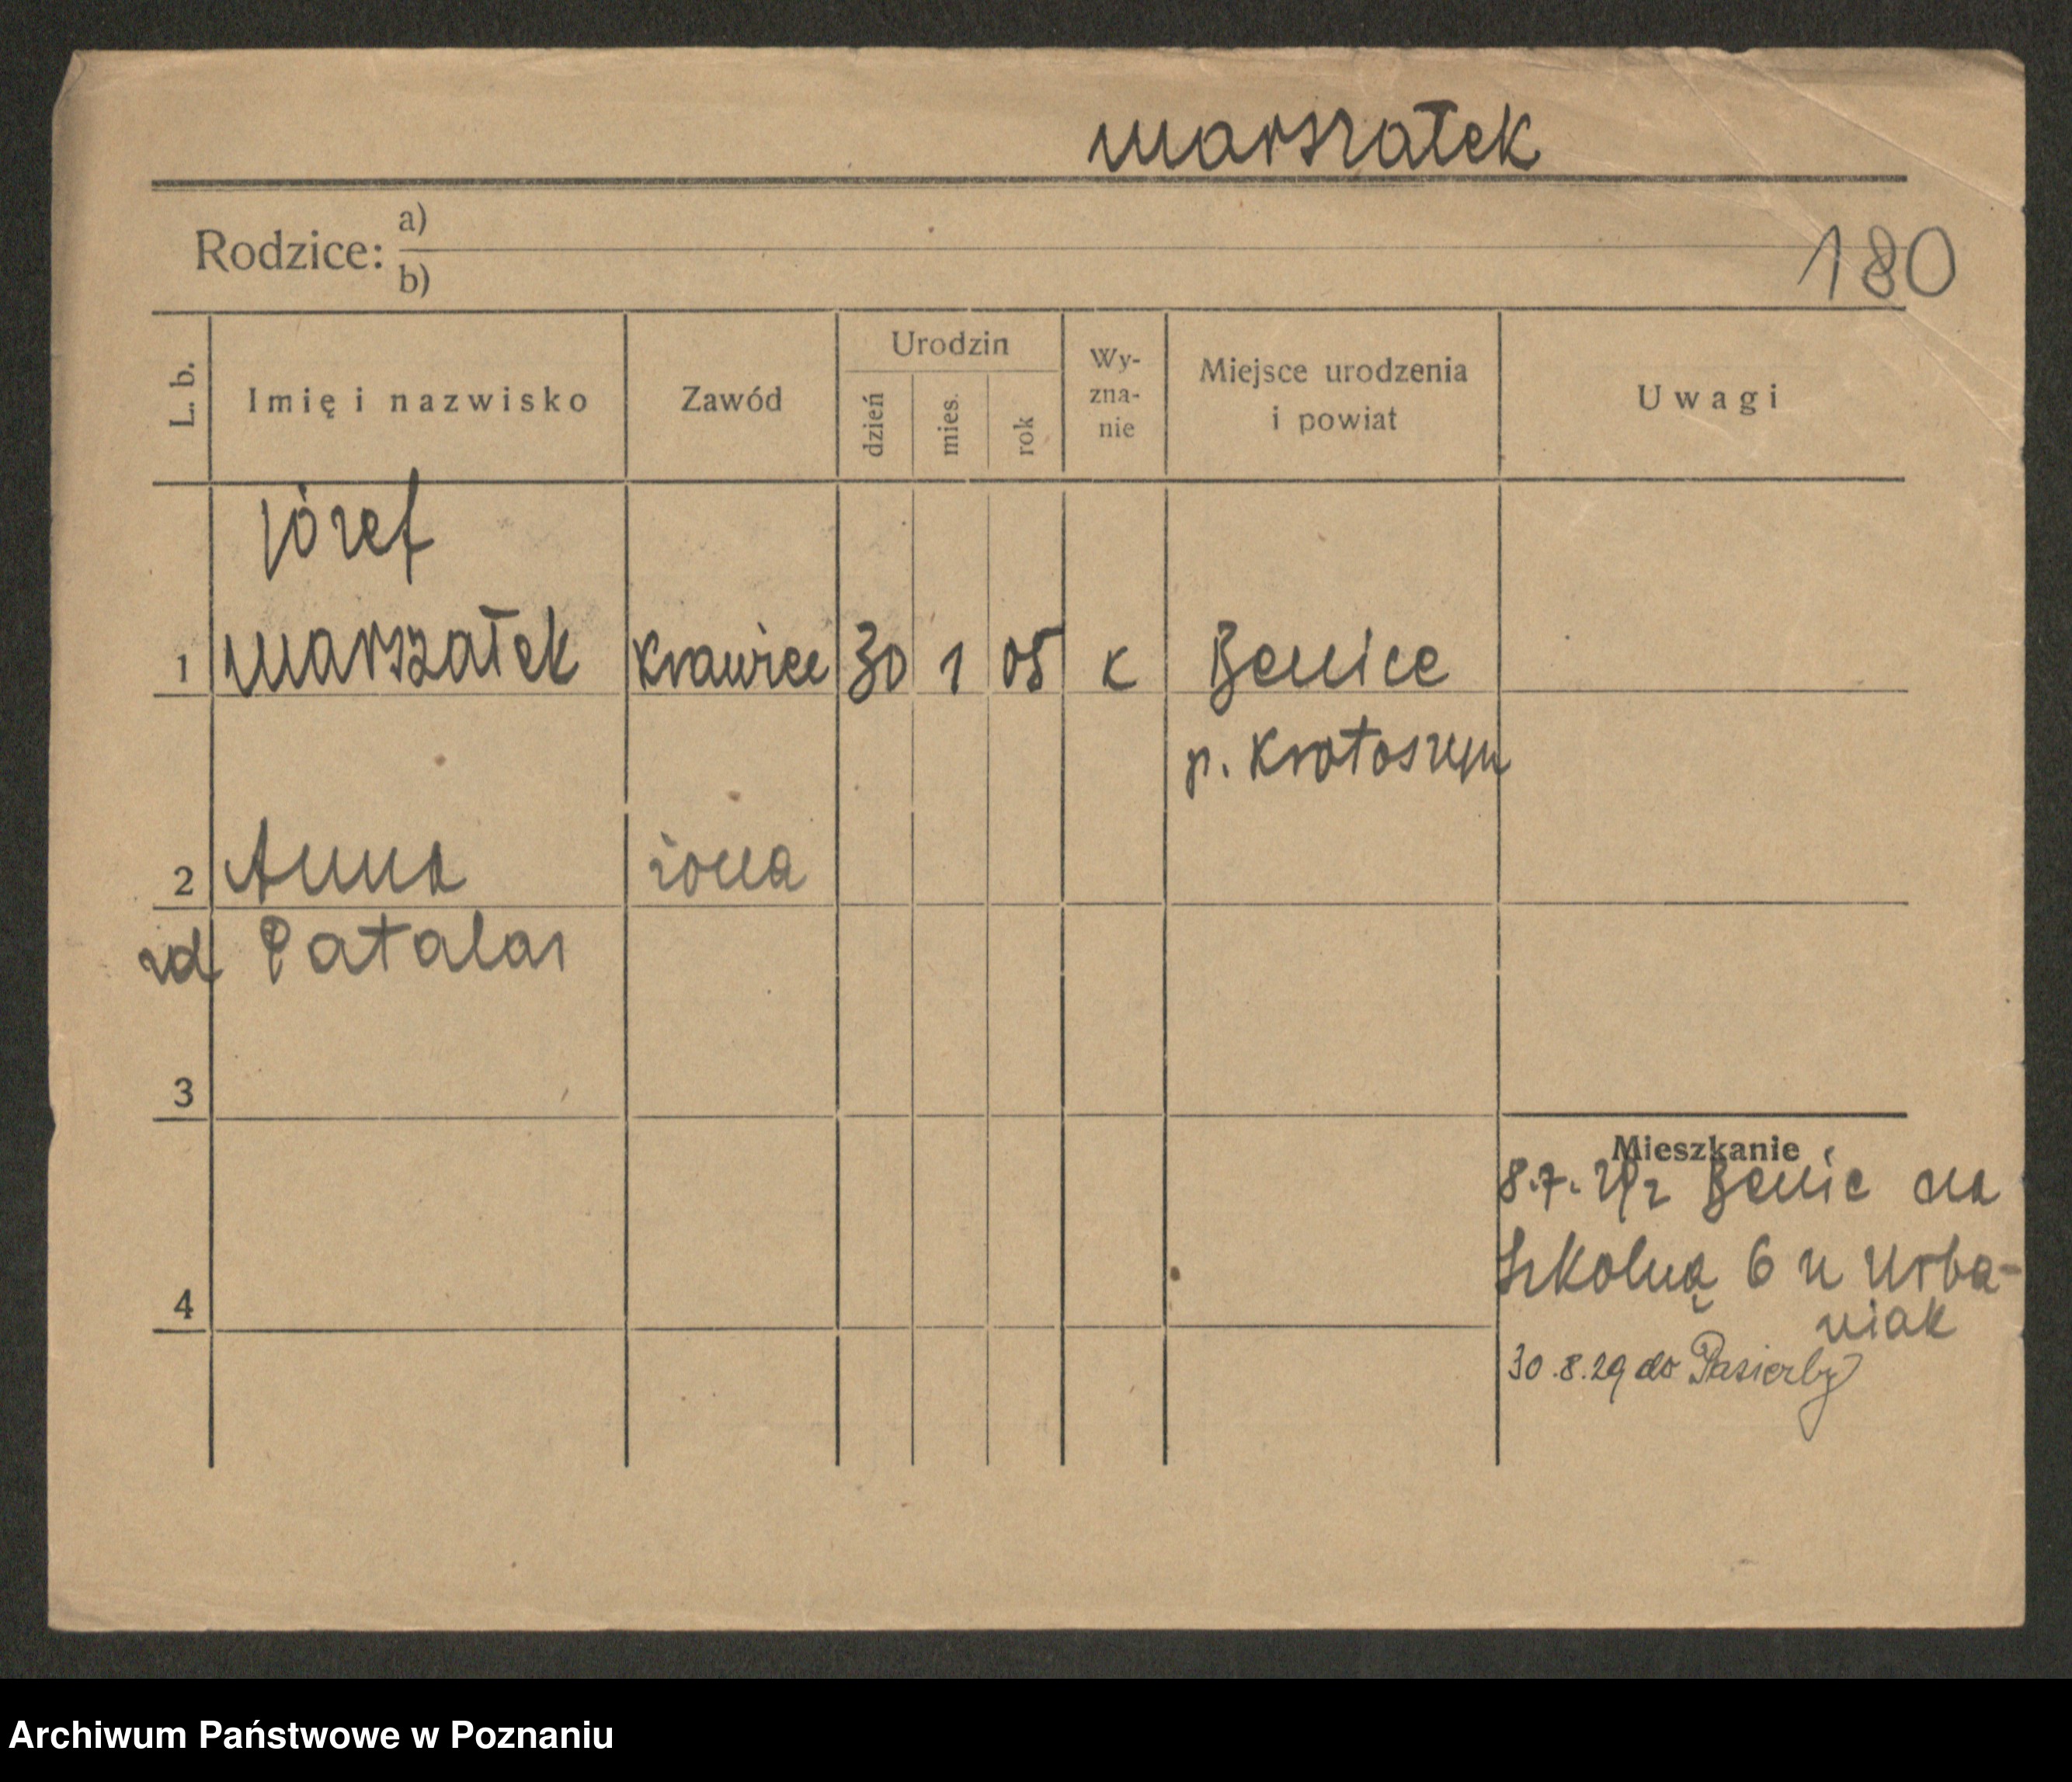 Marszałek
Rodzice: a)
b)
180
L. b.
Imię i nazwisko
Zawód
Urodzin
dzień
mies.
rok
Wy-
zna-
nie
Miejsce urodzenia
i powiat
Uwagi
Józef
1 Marszałek krawiec 30 1 05 k Benice
p. Krotoszyn
2 Anna żona
zd Patalas
3
4
Mieszkanie
8.7. z Benic na
Szkolną 6 u Urba-
niak
30.8.29 do Pasierby
Archiwum Państwowe w Poznaniu